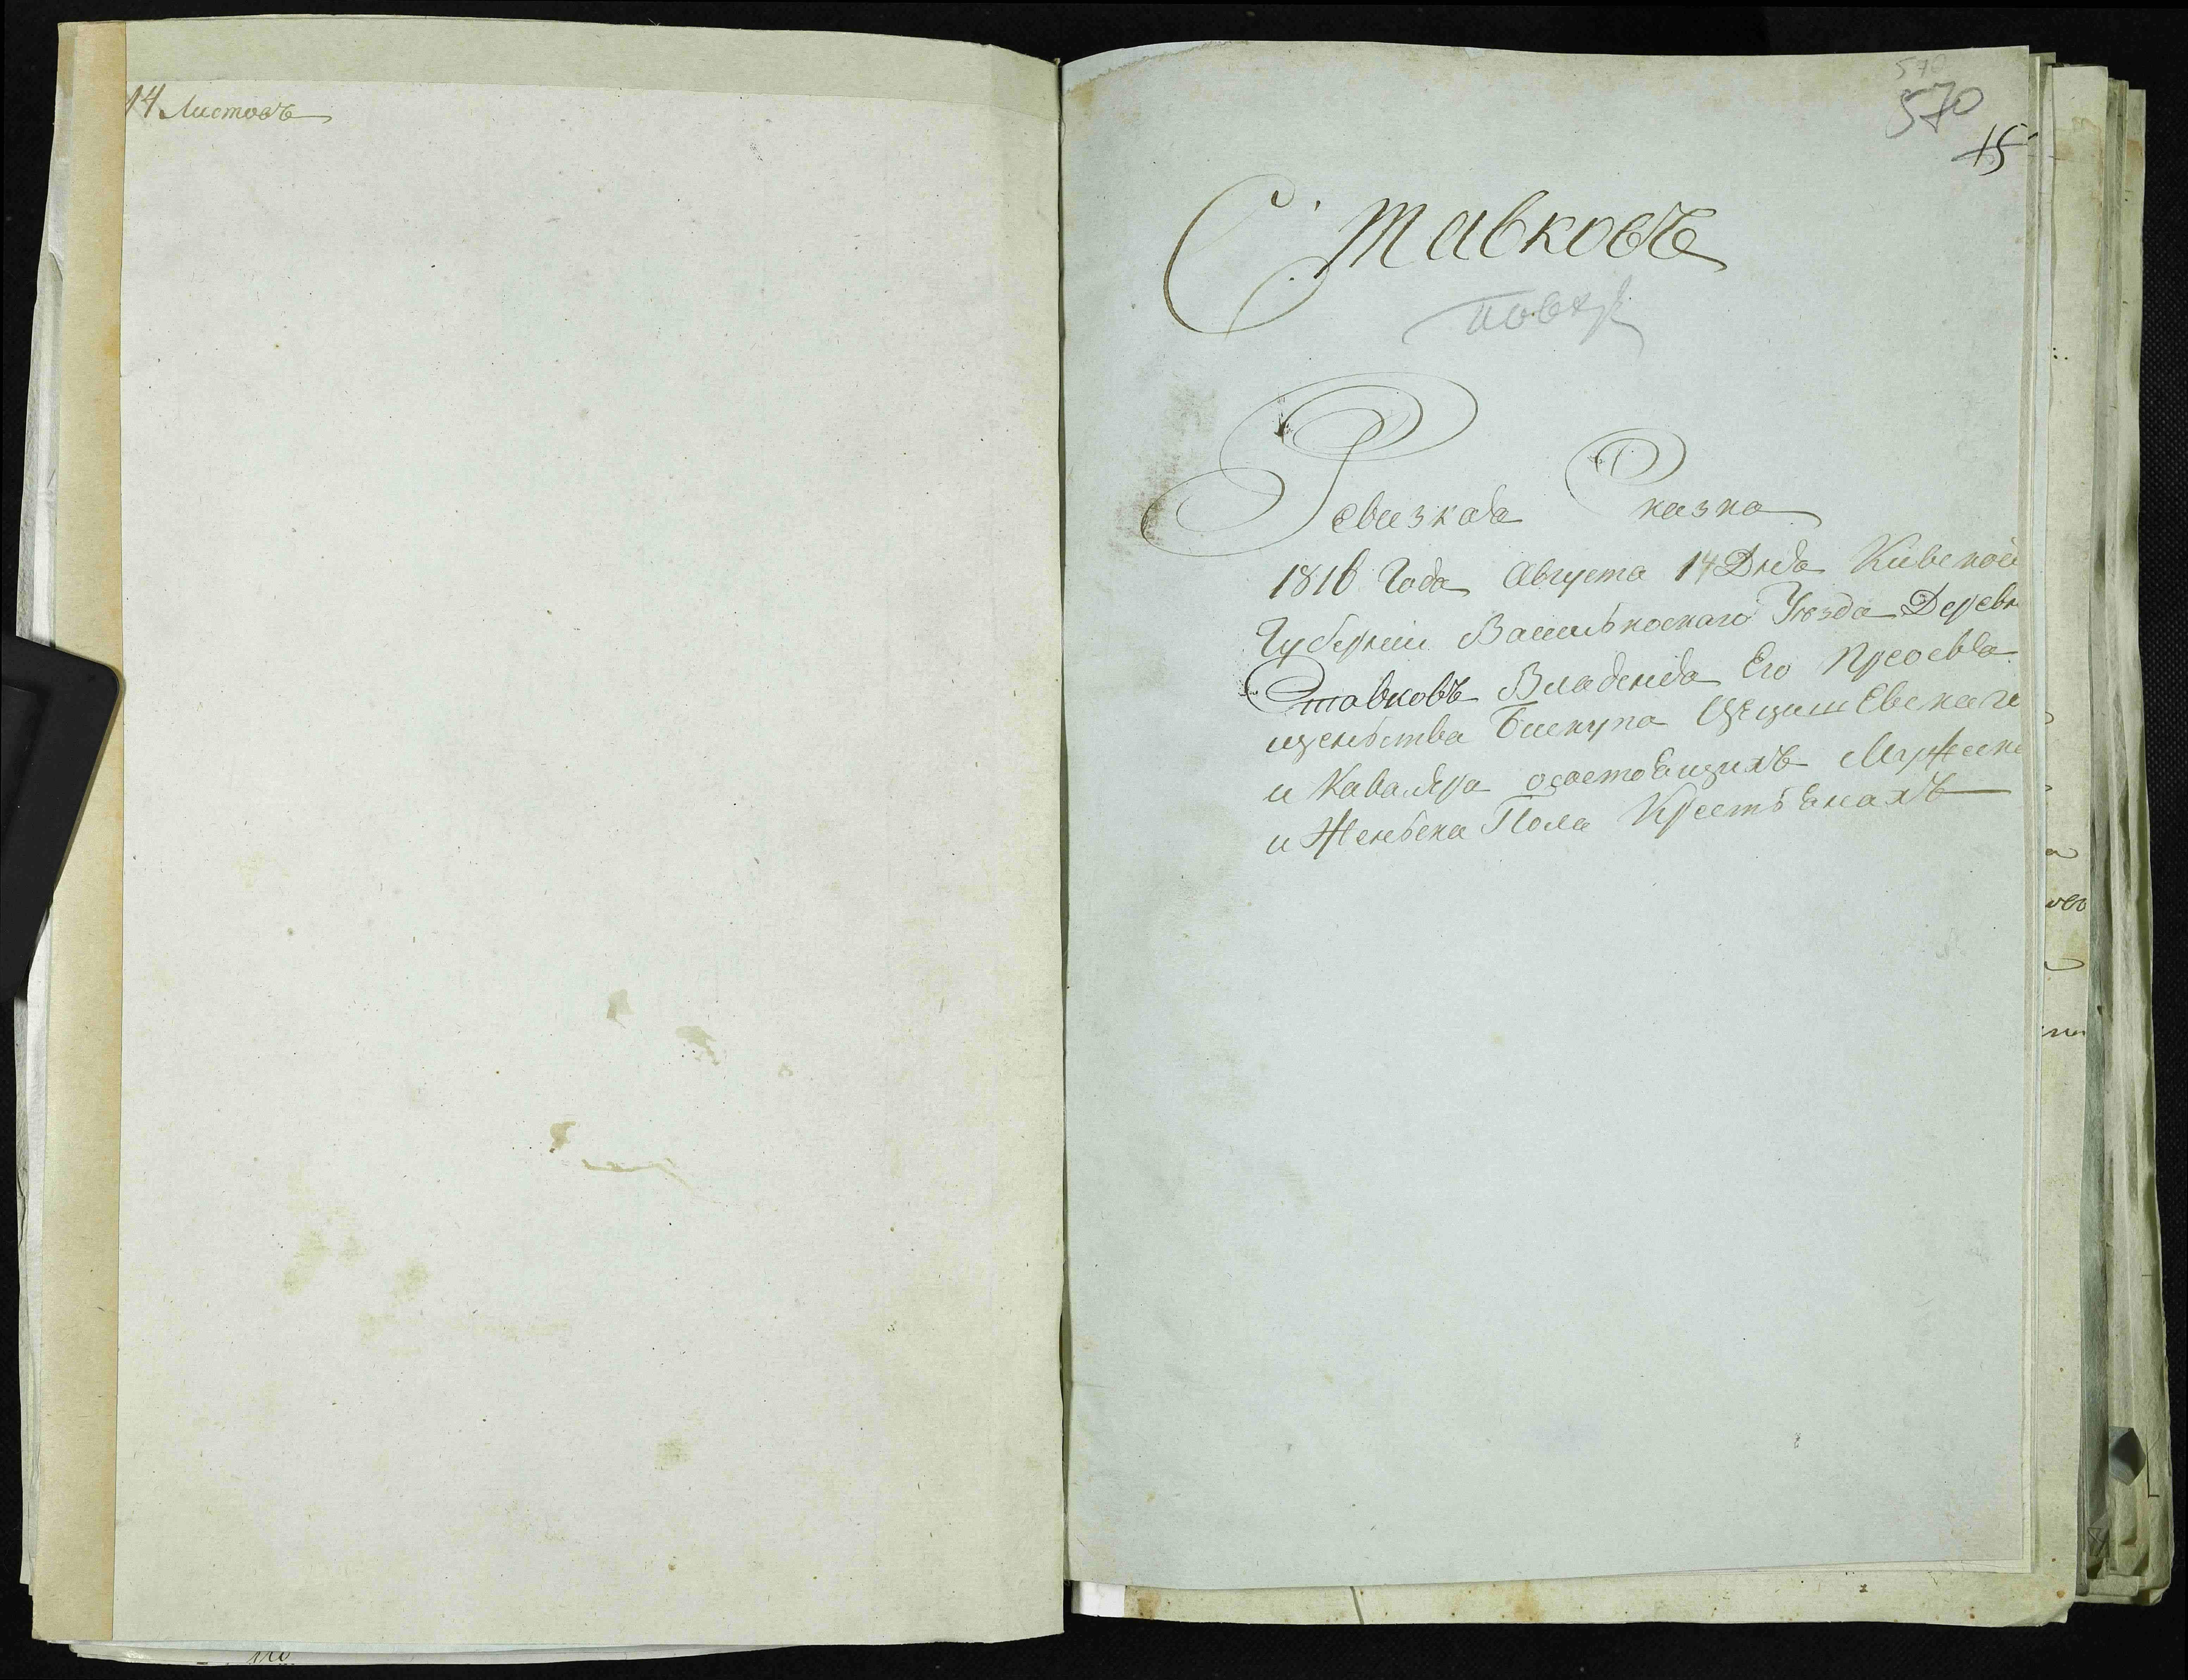 14 Листовъ
570
570
15
Ставковъ
Ревизкая Сказка
1816 Года Августа 14 Дня Киевской
Губернии Василькоскаго Уезда Деревн
Ставковъ Владения Его Преосвя
щеньства Бискупа Цецишевскаго
и Кавалера осостоящихъ Мужеска
и Женьска Пола Крестьянахъ